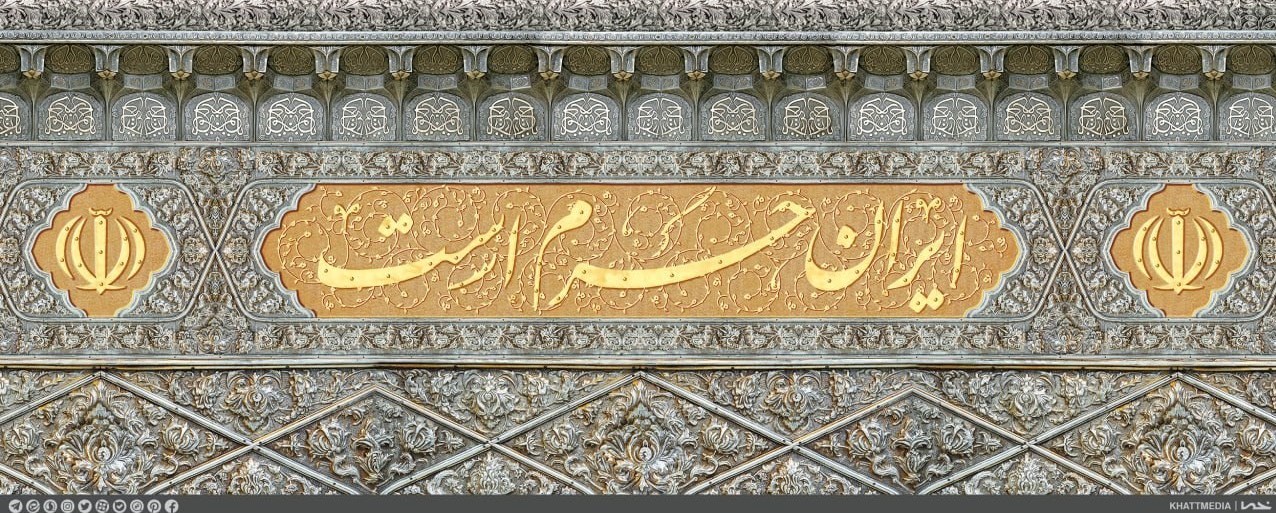 ایران حرم است
KHATTMEDIA